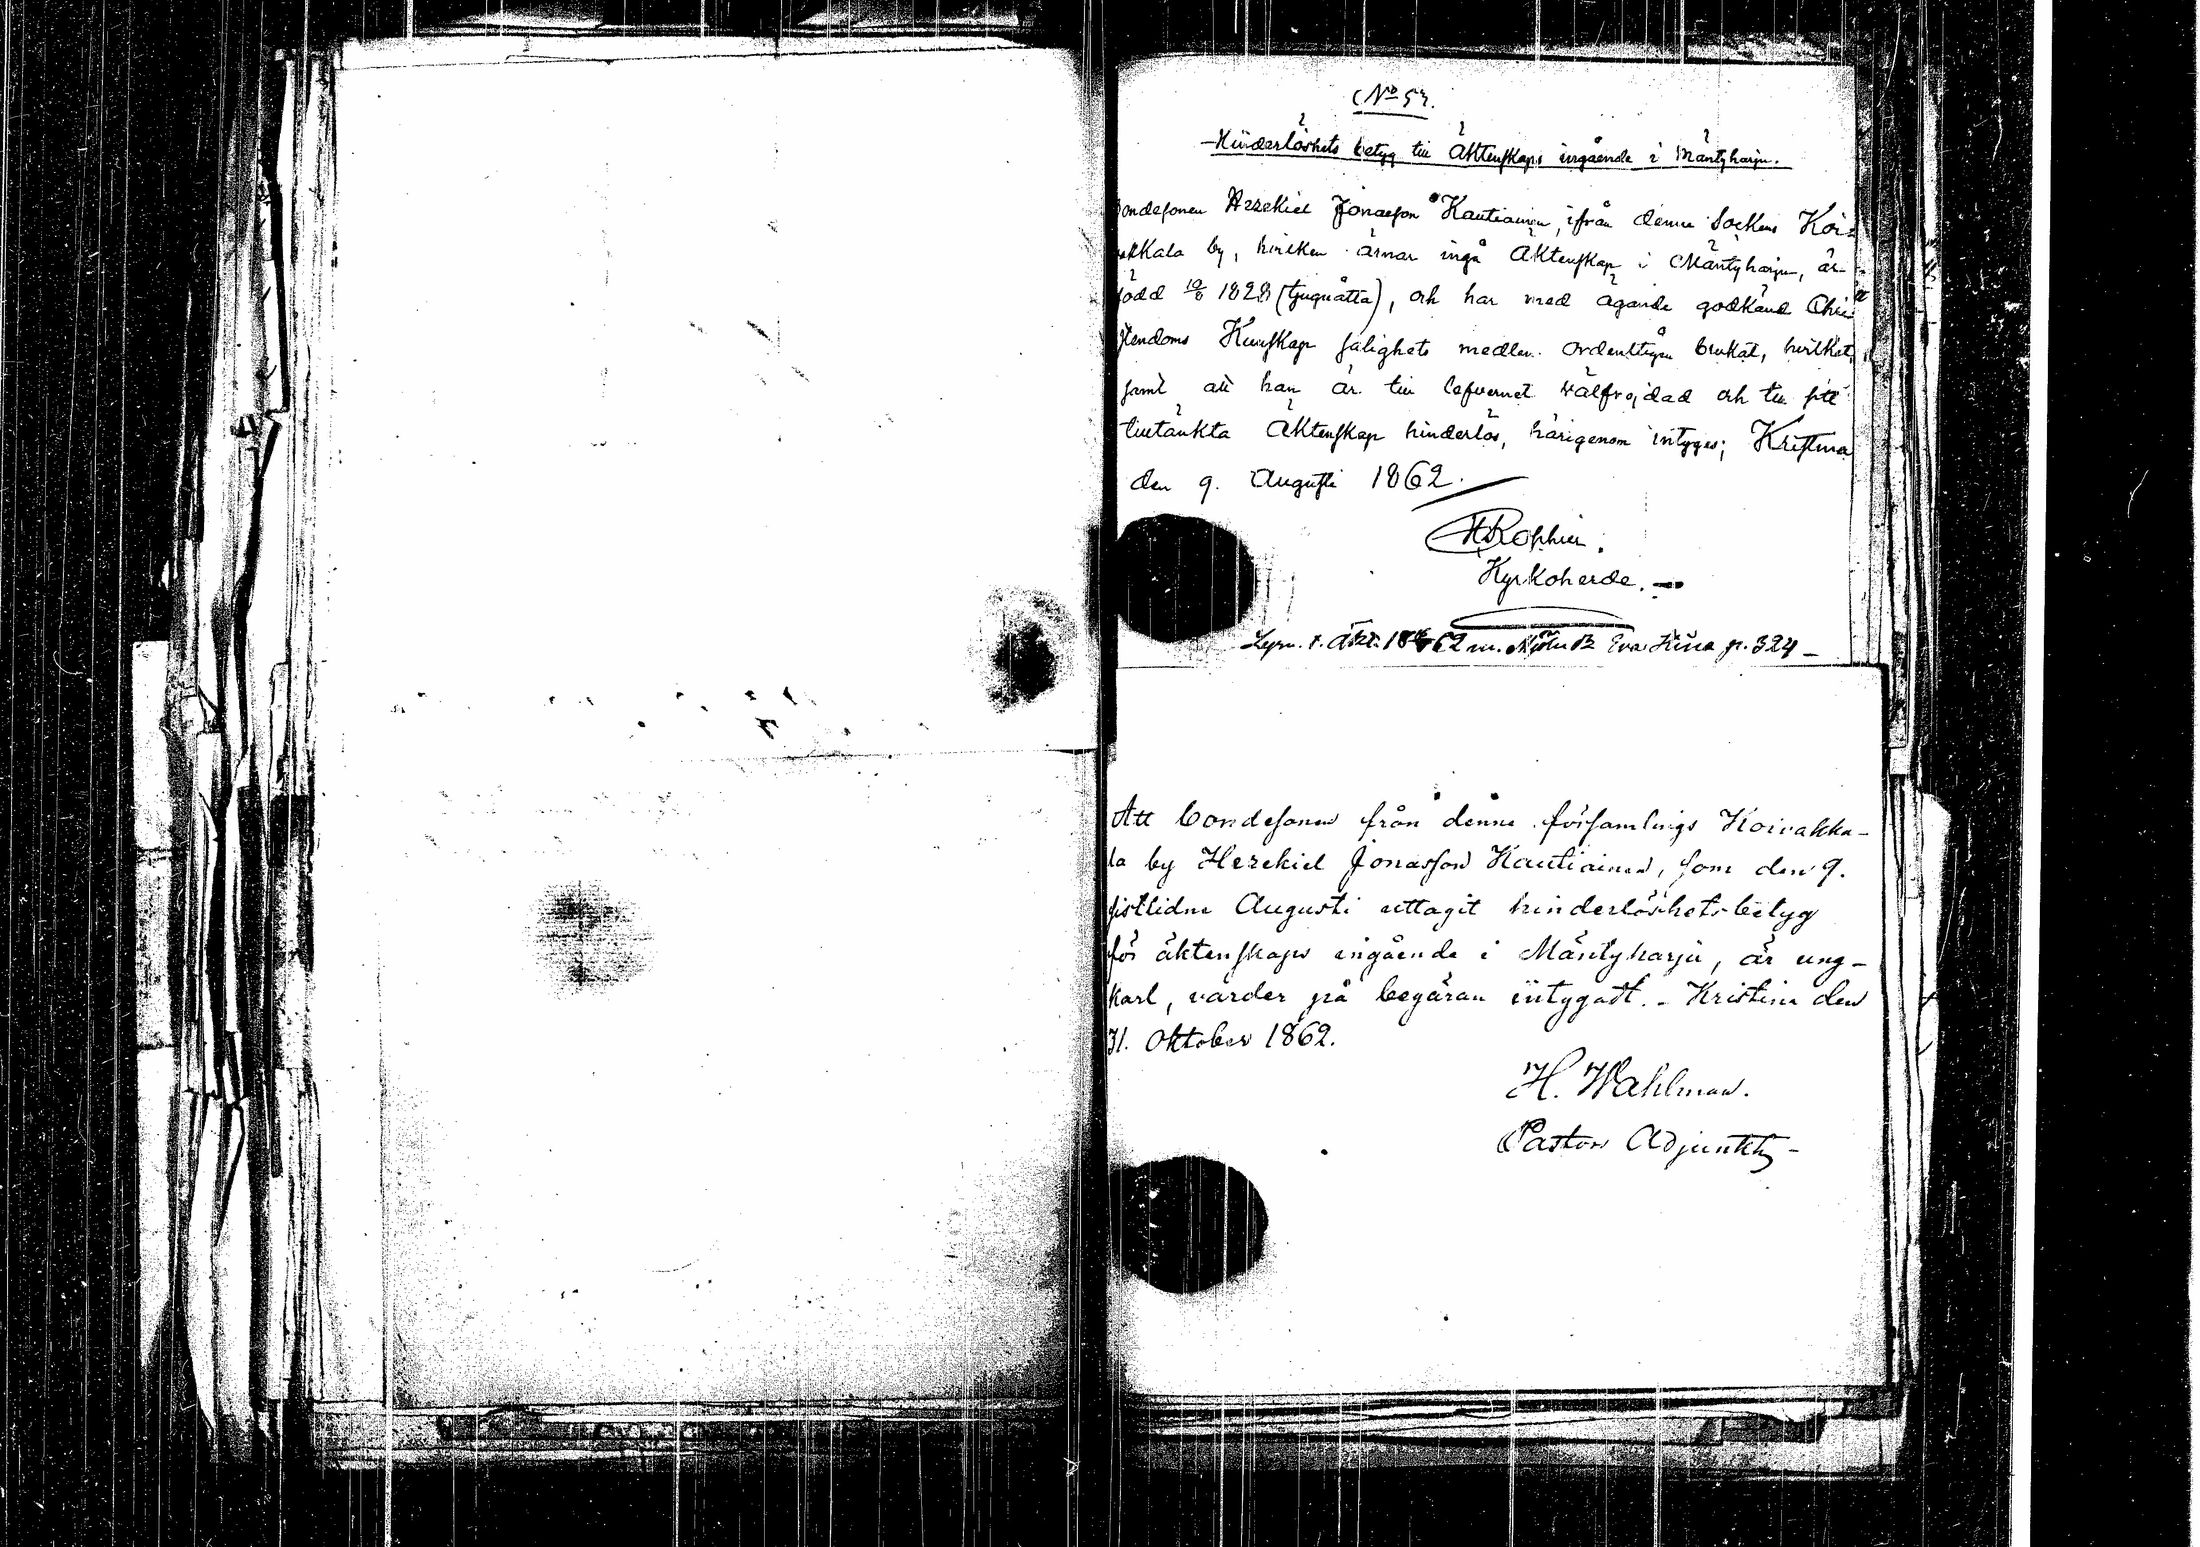 No 57.
Hinderlöshets betyg till Äktenskaps ingående i Mäntyharju.
ondesonen Hezekiel Jonasson Kautiainen, ifrån denne Sockens Koi-
akkala by, hvilken ärnar ingå Äktenskap i Mäntyharju, är
född 10/6 1828 (tjuguåtta), och har med ägande godkänd Chri-
stendoms Kunskap salighets medlen ordentligen brukat, hvilket,
samt att han är till lefvernet välfrejdad och till sitt
tilltänkta Äktenskap hinderlös, härigenom intygas; Kristina
den 9. Augusti 1862.
Kyrkoherde.
1862 m. Eva Stina p. 324
Att bondesonen från denne församlings Koivakka-
la by Hezekiel Jonasson Kautiainen, som den 9.
sistlidne Augusti uttagit hinderlöshetsbetyg
för äktenskaps ingående i Mäntyharju, är ung-
karl, varder på begäran intygadt. - Kristina den
31. Oktober 1862.
H. Wahlman.
Pastors Adjunkt